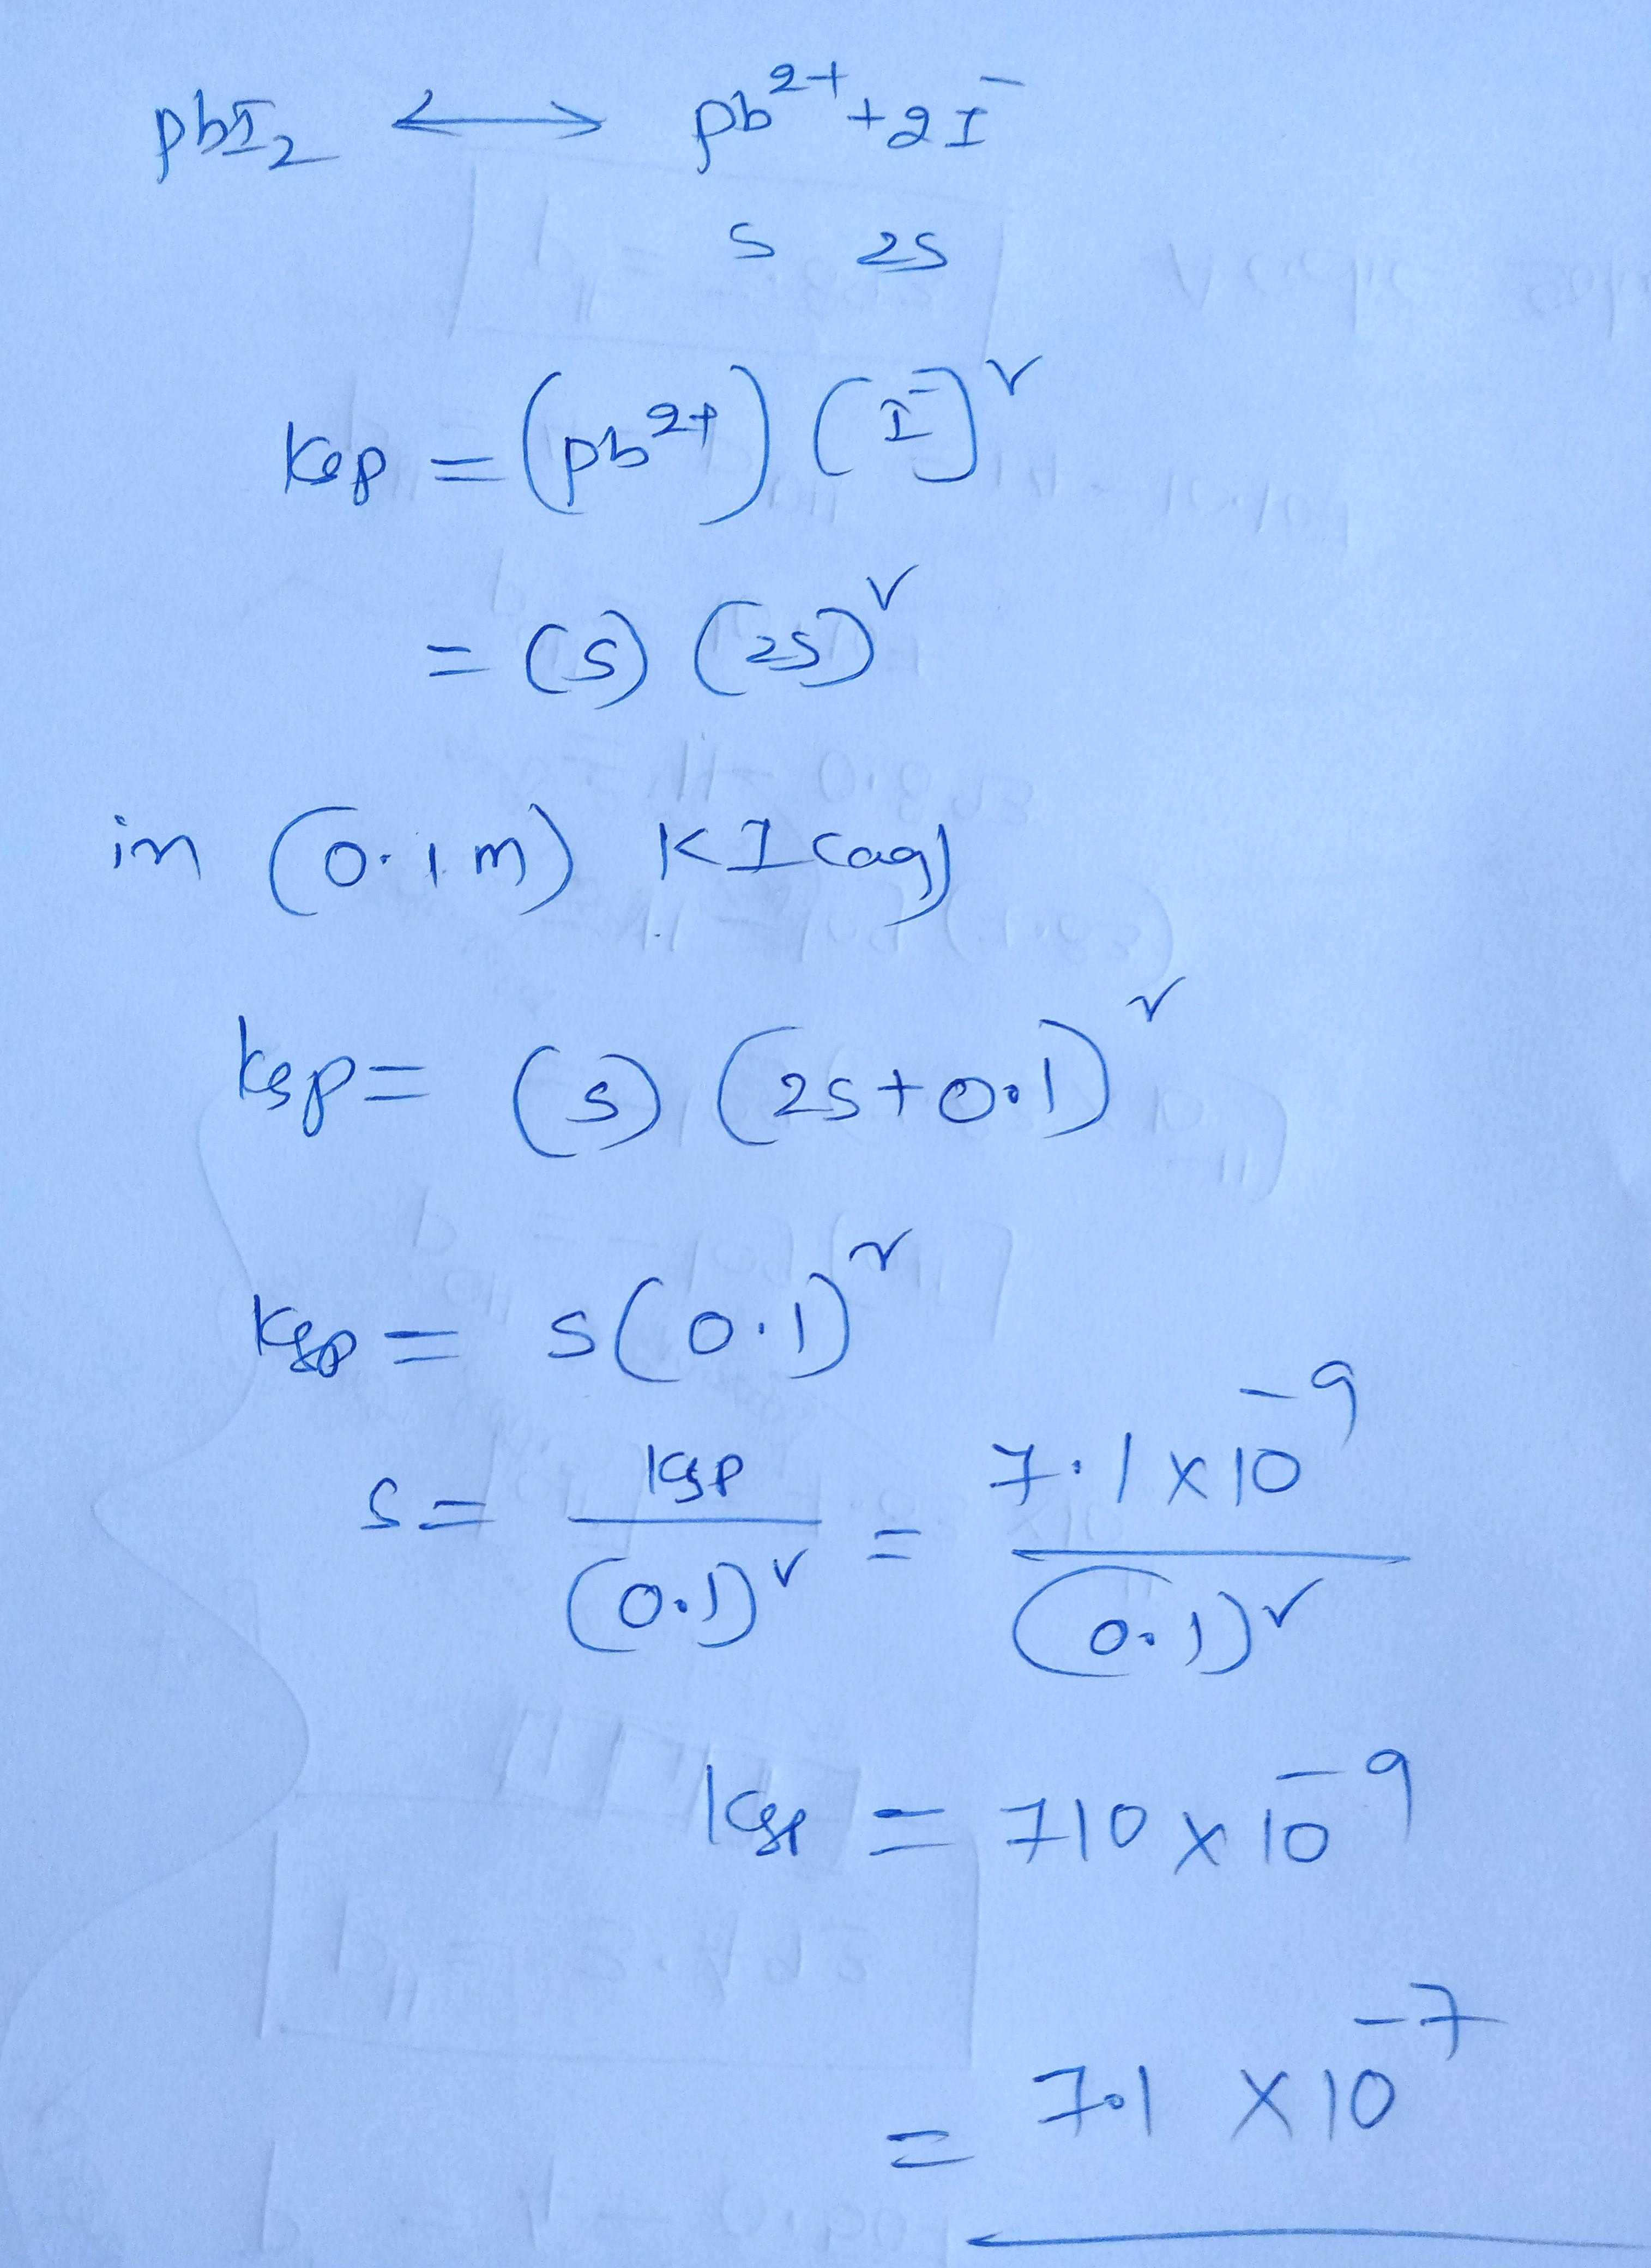 pbI₂ ⟷ pb²⁺ + 2I⁻
s 2s
Ksp = (pb²⁺) (I⁻]²
= (s) (2s)²
in (0.1m) KI(aq)
Ksp = (s) (2s+0.1)²
Ksp = s(0.1)²
s = Ksp/(0.1)² = 7.1 × 10⁻⁹/(0.1)²
Ksp = 710 × 10⁻⁹
= 7.1 × 10⁻⁷